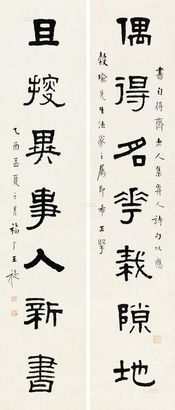 書自得齋老人集人詩句以應
偶得名花栽隙地
穀瑜先生法家之屬即希正
且搜異事入新書
乙酉孟夏之月福厂王禔